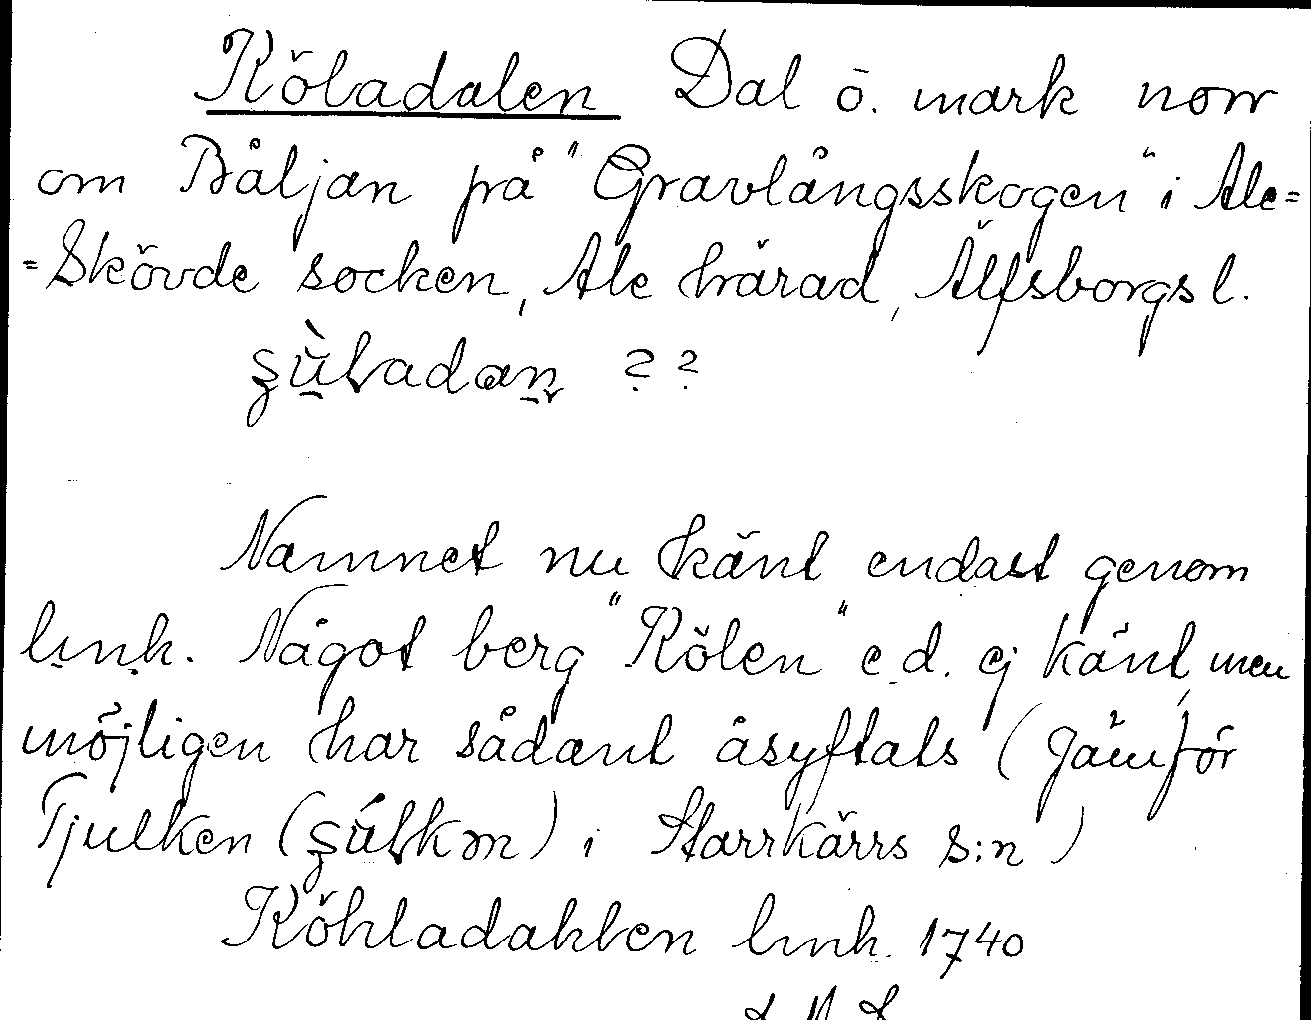 Köladalen Dal ö. mark norr
om Båljan på "Gravlångsskogen" i Ale=
=Skövde socken, Ale härad, Älfsborgs l.
??
Namnet nu känt endast genom
lmk. Något berg "Kölen" e.d. ej känt, men
möjligen har sådant åsyftats (Jämför
Tjulken ( ) i Starrkärrs s:n)
Köhladahlen lmk. 1740